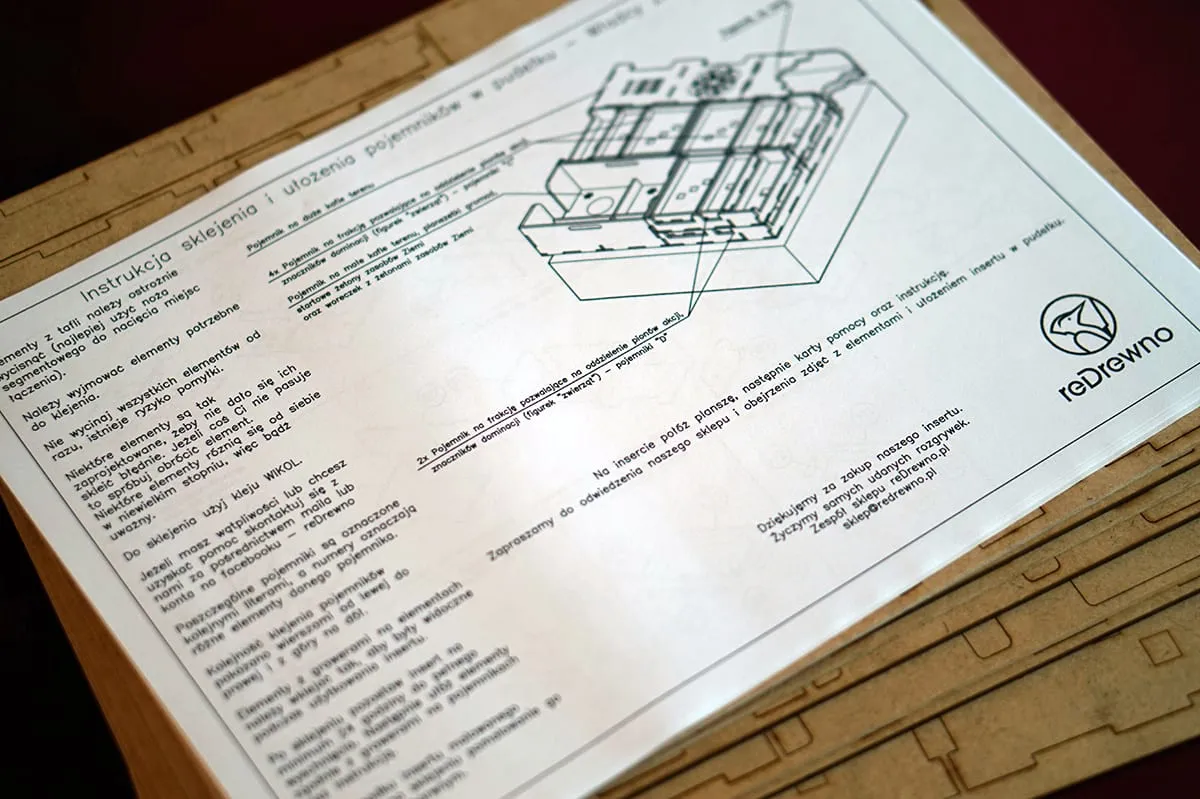 Instrukcja sklejenia i ułożenia pojemników w pudełku – Władcy
ementy z tafli należy ostrożnie
wycisnąć (najlepiej użyć noża
segmentowego do nacięcia miejsc
łączenia).
Należy wyjmować elementy potrzebne
do klejenia.
Nie wycinaj wszystkich elementów od
razu, istnieje ryzyko pomyłki.
Niektóre elementy są tak
zaprojektowane, żeby nie dało się ich
skleić błędnie. Jeżeli coś Ci nie pasuje
to spróbuj obrócić element.
Niektóre elementy różnią się od siebie
w niewielkim stopniu, więc bądź
uważny.
Do sklejenia użyj kleju WIKOL.
Jeżeli masz wątpliwości lub chcesz
uzyskać pomoc skontaktuj się z
nami za pośrednictwem maila lub
konta na facebooku – reDrewno
Poszczególne pojemniki są oznaczone
kolejnymi literami, a numery oznaczają
różne elementy danego pojemnika.
Kolejność klejenia pojemników
pokazano wierszami od lewej do
prawej i z góry na dół.
Elementy z grawerami na elementach
należy wklejać tak, aby były widoczne
podczas użytkowania insertu.
Po sklejeniu pozostaw insert na
minimum 24 godziny do pełnego
wyschnięcia. Następnie ułóż elementy
zgodnie z grawerami na pojemnikach
insertu malowanego
sklejeniu pomalowanie go
Pojemnik na duże kafle terenu
4x Pojemnik na frakcję pozwalające na oddzielenie pionów akcji,
znaczników dominacji (figurek "zwierząt") – pojemniki
Pojemnik na małe kafle terenu, planszetki gromad,
startowe żetony zasobów Ziemi
oraz woreczek z żetonami zasobów Ziemi
2x Pojemnik na frakcję pozwalające na oddzielenie pionów akcji,
znaczników dominacji (figurek "zwierząt") – pojemniki "D"
Na insercie połóż planszę, następnie karty pomocy oraz instrukcję.
Zapraszamy do odwiedzenia naszego sklepu i obejrzenia zdjęć z elementami i ułożeniem insertu w pudełku.
Dziękujemy za zakup naszego insertu.
Życzymy samych udanych rozgrywek.
Zespół sklepu reDrewno.pl
sklep@redrewno.pl
reDrewno